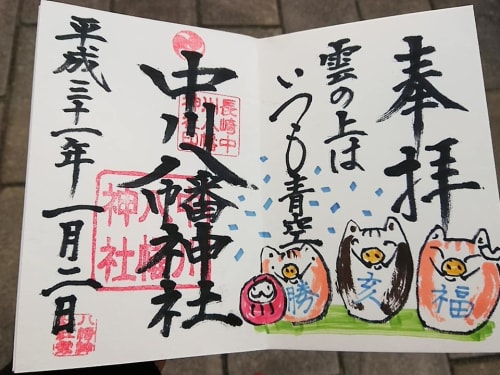 奉拝
雲の上は
いつも青空
福
亥
勝
中川八幡神社
長崎中
中川
八幡
神社
平成三十一年一月二日